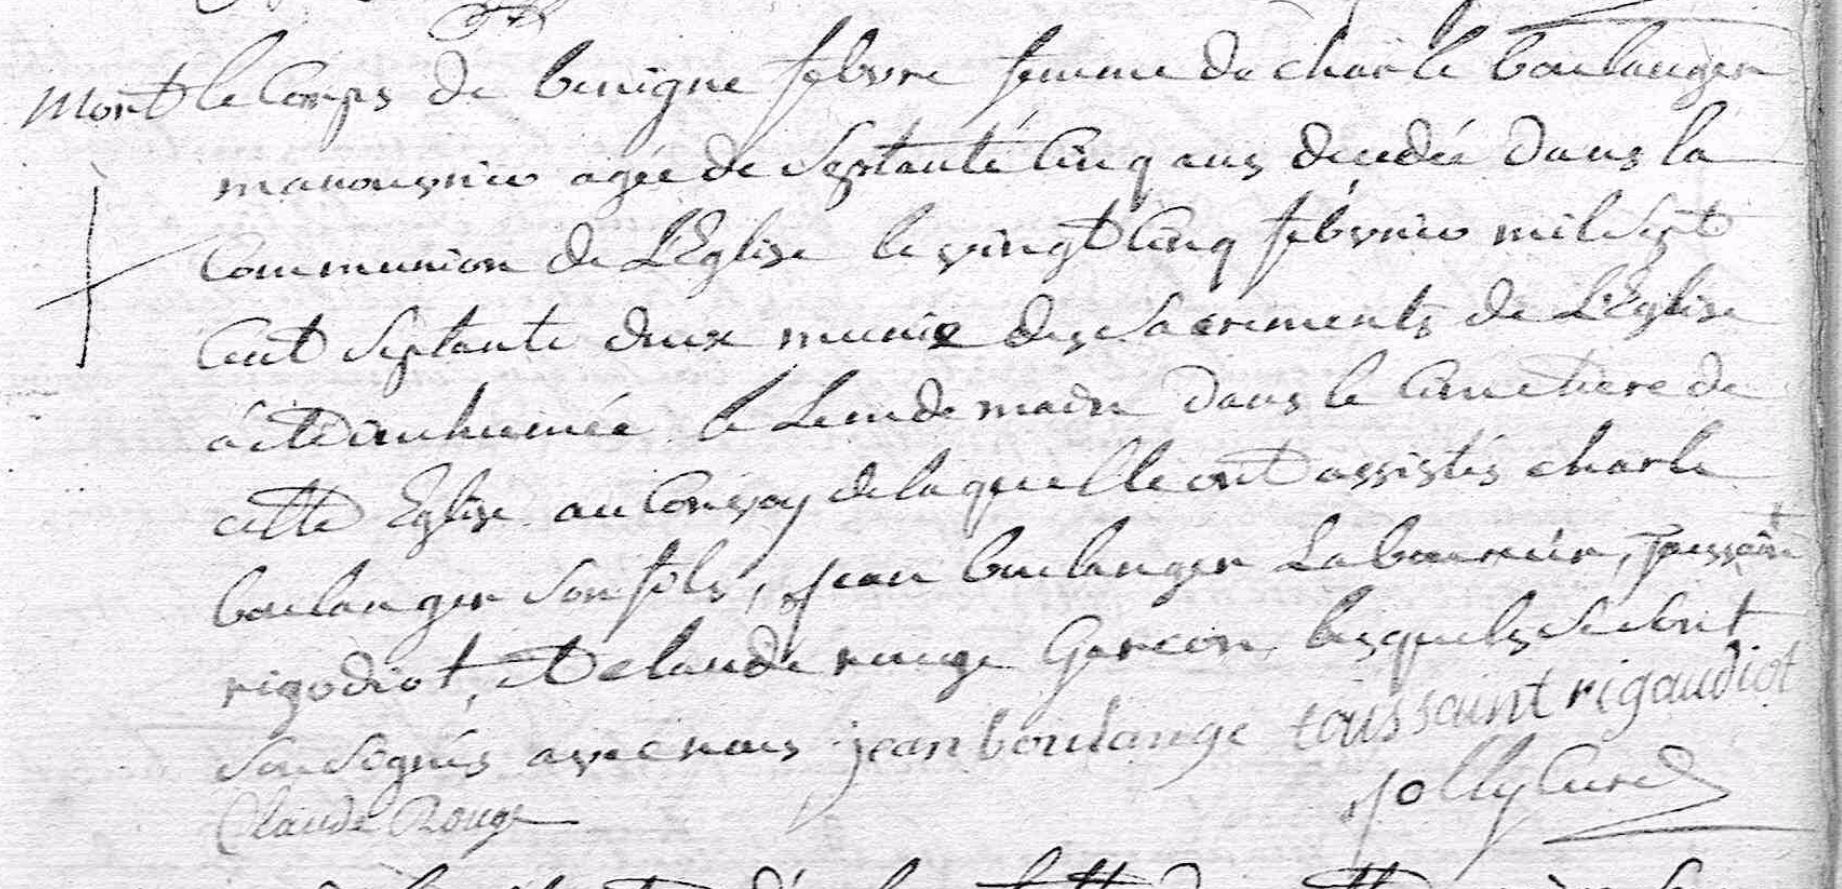 Mort le Corps de benigne febvre femme de charle boulanger
manouvrier agée de septante Cinq ans decedée dans la
Communion de L'Eglise le vingt Cinq febvrier mil sept
Cent septante deux munie des sacrements de L'Eglise
a été inhumée le Lendemain dans le Cimetiere de
cette Eglise au Convoy de laquelle ont assistés charle
boulanger son fils, jean boulanger Laboureur, toussaint
rigodiot, et claude rouge Garcon, lesquels se sont
sousignés avec nous jean boulange toussaint rigaudiot
Claude Rouge jolly Curé